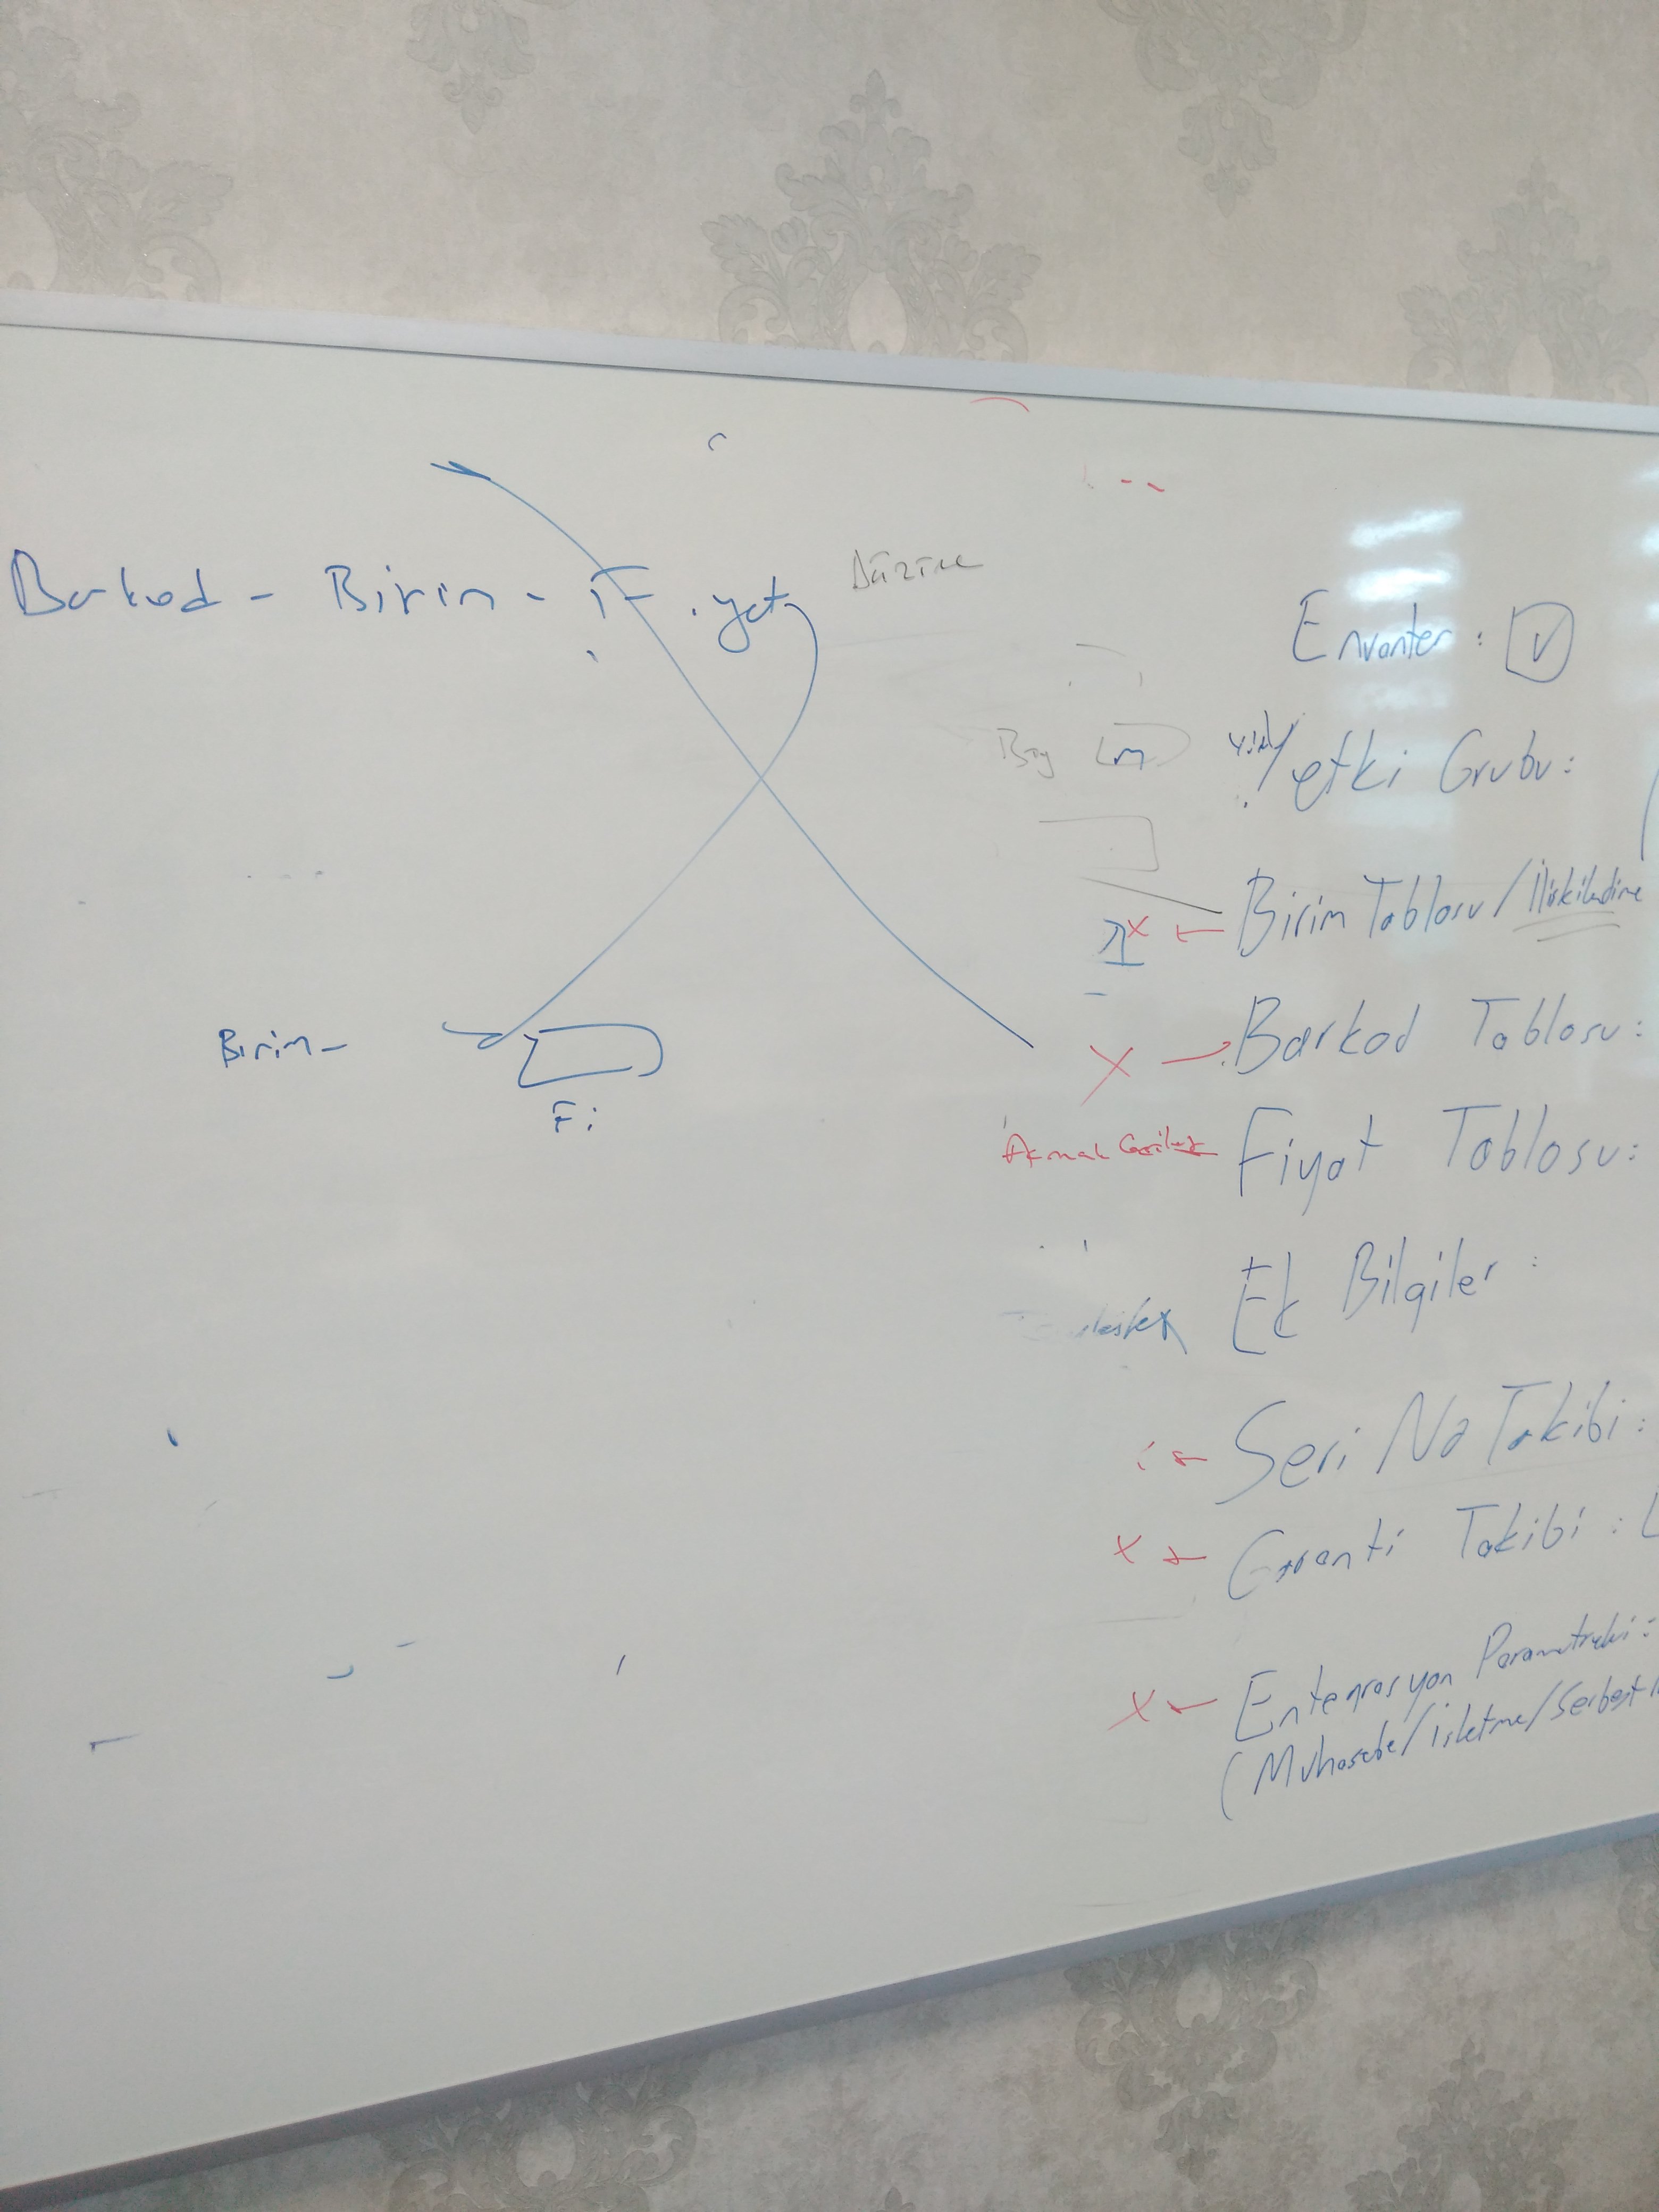 Barkod - Birim - Fiyat
Düzine
Envanter : 
Boy
Yetki Grubu :
Birim Tablosu / İlişkilendirme
Barkod Tablosu :
Birim -
Fi
Fiyat Tablosu :
Ek Bilgiler :
Seri No Takibi :
Garanti Takibi :
Entegrasyon Parametreleri :
( Muhasebe / işletme / Serbest